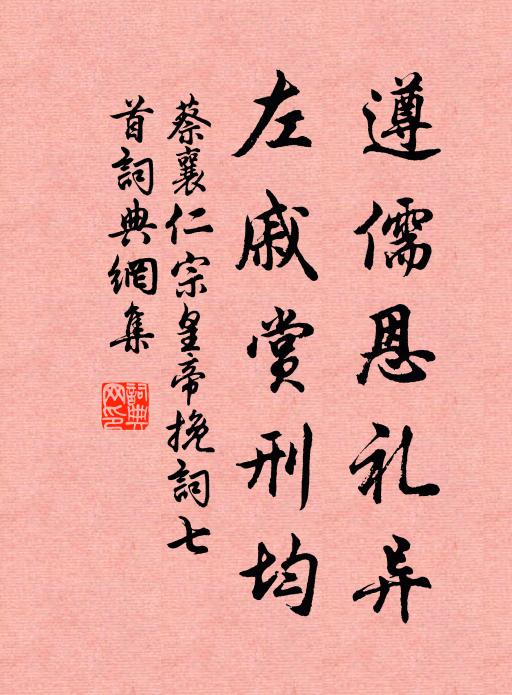 遵儒恩礼异
左戚赏刑均
蔡襄仁宗皇帝挽詞七
首詞典網集
詞典
网印